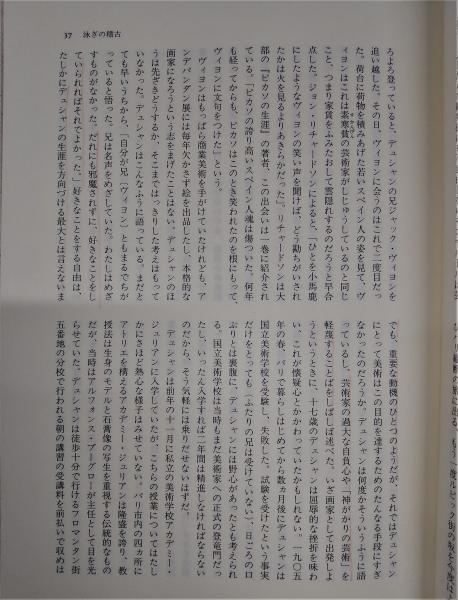 37　泳ぎの稽古
ろよろ登っていると、デュシャンの兄ジャック・ヴィヨンを
追い越した。その日、ヴィヨンに会うのはこれで二度目だっ
た。荷台に荷物を積みあげた若いスペイン人の姿を見て、ヴ
ィヨンはこれは素寒貧の芸術家がしじゅうしているのと同じ
こと、つまり家賃をふみたおして雲隠れするのだろうと早合
点した。ジョン・リチャードソンによると、「ひとを小馬鹿
にしたようなヴィヨンの笑い声を聞けば、どう勘ちがいされ
たかは火を見るよりあきらかだった」。リチャードソンは大
部の『ピカソの生涯』の著者で、この出会いは一巻に紹介され
ている。「ピカソの誇り高いスペイン人魂は傷ついた。何年
も経ってからも、ピカソはこのとき笑われたのを根にもって、
ヴィヨンに文句をつけた」という。
　ヴィヨンはもっぱら商業美術を手がけていたけれども、ア
ンデパンダン展には毎年欠かさず絵を出品したし、本格的な
画家になろうという志をまげたことはない。デュシャンのほ
うは先ざきどうするか、そこまではっきりした考えはもって
いなかった。デュシャンはこんなふうに語っている。まだと
ても早いうちから、「自分の兄（ヴィヨン）ともまるでちが
っていると悟った。兄は名声をめざしていた。わたしはめざ
すものがなかった。だれにも邪魔されずに、好きなことをし
ていられればそれでよかった。」好きなことをする自由は、
たしかにデュシャンの生涯を方向づける最大とは言えないま
でも、重要な動機のひとつのようだが、それではデュシャン
にとって美術はこの目的を達するためのたんなる手段にすぎ
なかったのだろうか。デュシャンは何度かそういうふうに語
っているし、芸術家の過大な自負心や「神がかりの芸術」を
軽蔑することばをしばしば述べた。いざ画家として出発しよ
うというときに、十七歳のデュシャンは屈辱的な挫折を味わ
い、これが懐疑心とかかわっていたかもしれない。一九〇五
年の春、パリで暮らしはじめてから数ヵ月後にデュシャンは
国立美術学校を受験し、失敗した。試験を受けたという事実
だけをとっても（ふたりの兄は受けていない）、日ごろの口
ぶりとは裏腹に、デュシャンには野心があったとも考えられ
る。国立美術学校は当時もまだ美術家への正式の登竜門だっ
たし、いったん入学すれば二年間は精進しなければならない
のだから、そう気軽には乗りだせないはずだ。
　デュシャンは前年の十一月に私立の美術学校アカデミー・
ジュリアンに入学していたが、こちらの授業についてはたし
かにさほど熱心な様子はみせていない。パリ市内の四ヵ所に
アトリエを構えるアカデミー・ジュリアンは隆盛を誇り、教
授法は生身のモデルと石膏像の写生を重視する伝統的なもの
だが、当時はアルフォンス・ブーグローが主任として目を光
らせていた。デュシャンは徒歩十分で行けるフロマンタン街
五番地の分校で行われる朝の講習の受講料を前払いで収めは